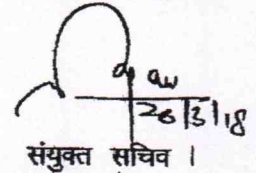 26/3/18
संयुक्त सचिव ।